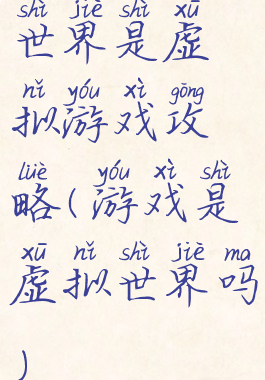 shì jiè shì xū
世界是虚
nǐ yóu xì gōng
拟游戏攻
lüè yóu xì shì
略(游戏是
xū nǐ shì jiè ma
虚拟世界吗
)